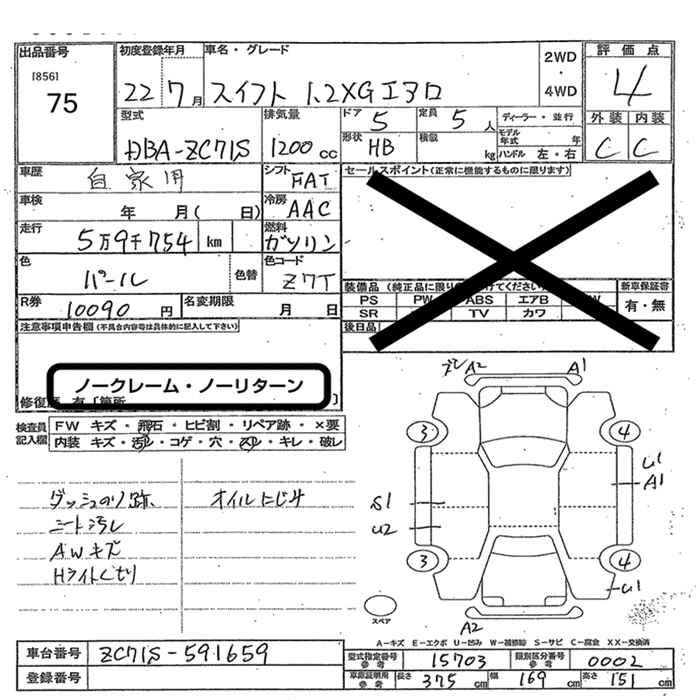 出品番号
[856]
75
初度登録年月
22 7月
車名・グレード
スイフト 1.2XGエアロ
2WD
・
4WD
評価点
4
外装 内装
C C
型式
DBA-ZC71S
排気量
1200cc
ドア 5
定員 5人
ディーラー・並行
形状 HB
積載 kg
モデル年式 年
ハンドル 左・右
車歴
自家用
シフト
FAT
セールスポイント(正常に機能するものに限ります)
車検
年 月( 日)
冷房
AAC
走行
5万9千754 km
燃料
ガソリン
色
パール
色替
色コード
Z7T
装備品(純正品に限り
けてください)
新車保証書
PS PW ABS エアB W
SR TV カワ
有・無
後日品
R券
10090円
名変期限
月 日
注意事項申告欄(不具合内容等は具体的に記入して下さい)
ノークレーム・ノーリターン
修復歴 有「箇所
検査員
記入欄
FW キズ・飛石・ヒビ割・リペア跡・×要
内装 キズ・汚レ・コゲ・穴・スレ・キレ・破レ
ダッシュのり跡、 オイルにじみ
シート汚レ
AWキズ
Hライトくもり
ズレ A2 A1
3 4
U1
A1
S1
U2
3 4
U1
A2
スペア
A−キズ E−エクボ U−凹み W−補修跡 S−サビ C−腐食 XX−交換済
車台番号
ZC71S-591659
登録番号
型式指定番号
参考
15703
類別区分番号
参考
0002
車庫証明用
参考
長さ 375cm
幅 169cm
高さ 151cm